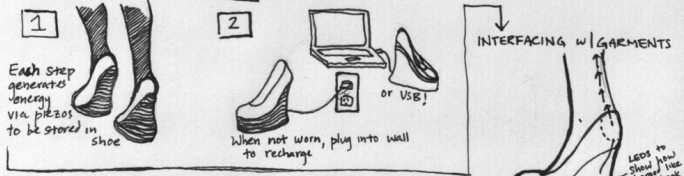 1
Each step
generates
energy
via piezos
to be stored in
shoe
2
or USB!
When not worn, plug into wall
to recharge
INTERFACING w/ GARMENTS
LEDS to
show how
like